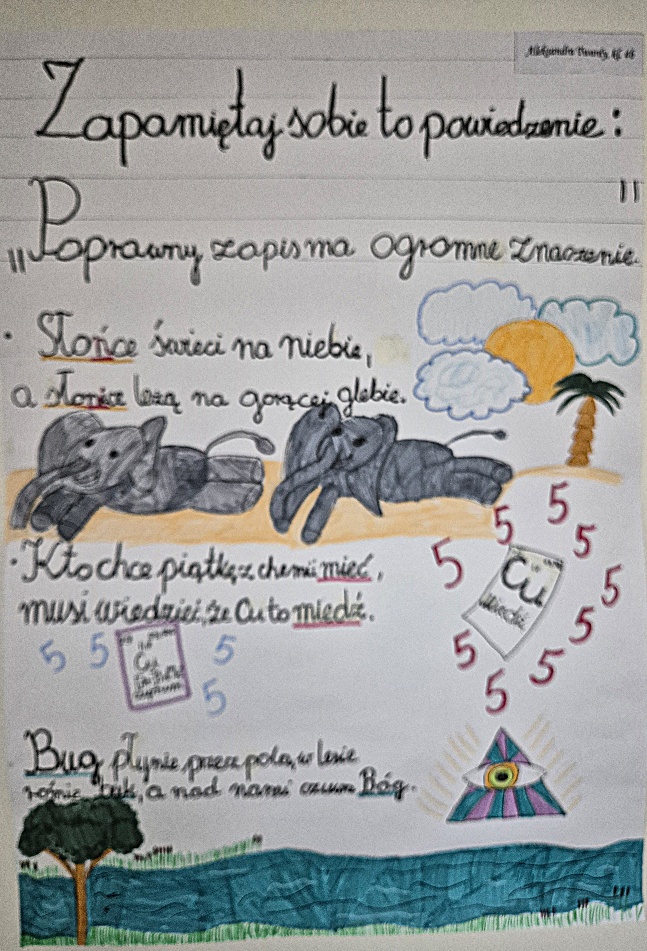 Aleksandra
Zapamiętaj sobie to powiedzenie:
"
„Poprawny zapis ma ogromne znaczenie.
• Słońce świeci na niebie,
a słonice leżą na gorącej glebie.
• Kto chce piątkę z chemii mieć,
musi wiedzieć, że Cu to miedź.
5 5 5 5 5 5 5 5 5
Cu
miedź
5 5 5 5
Cu
Bug płynie przez pola, w lesie
rośnie buk, a nad nami czuwa Bóg.